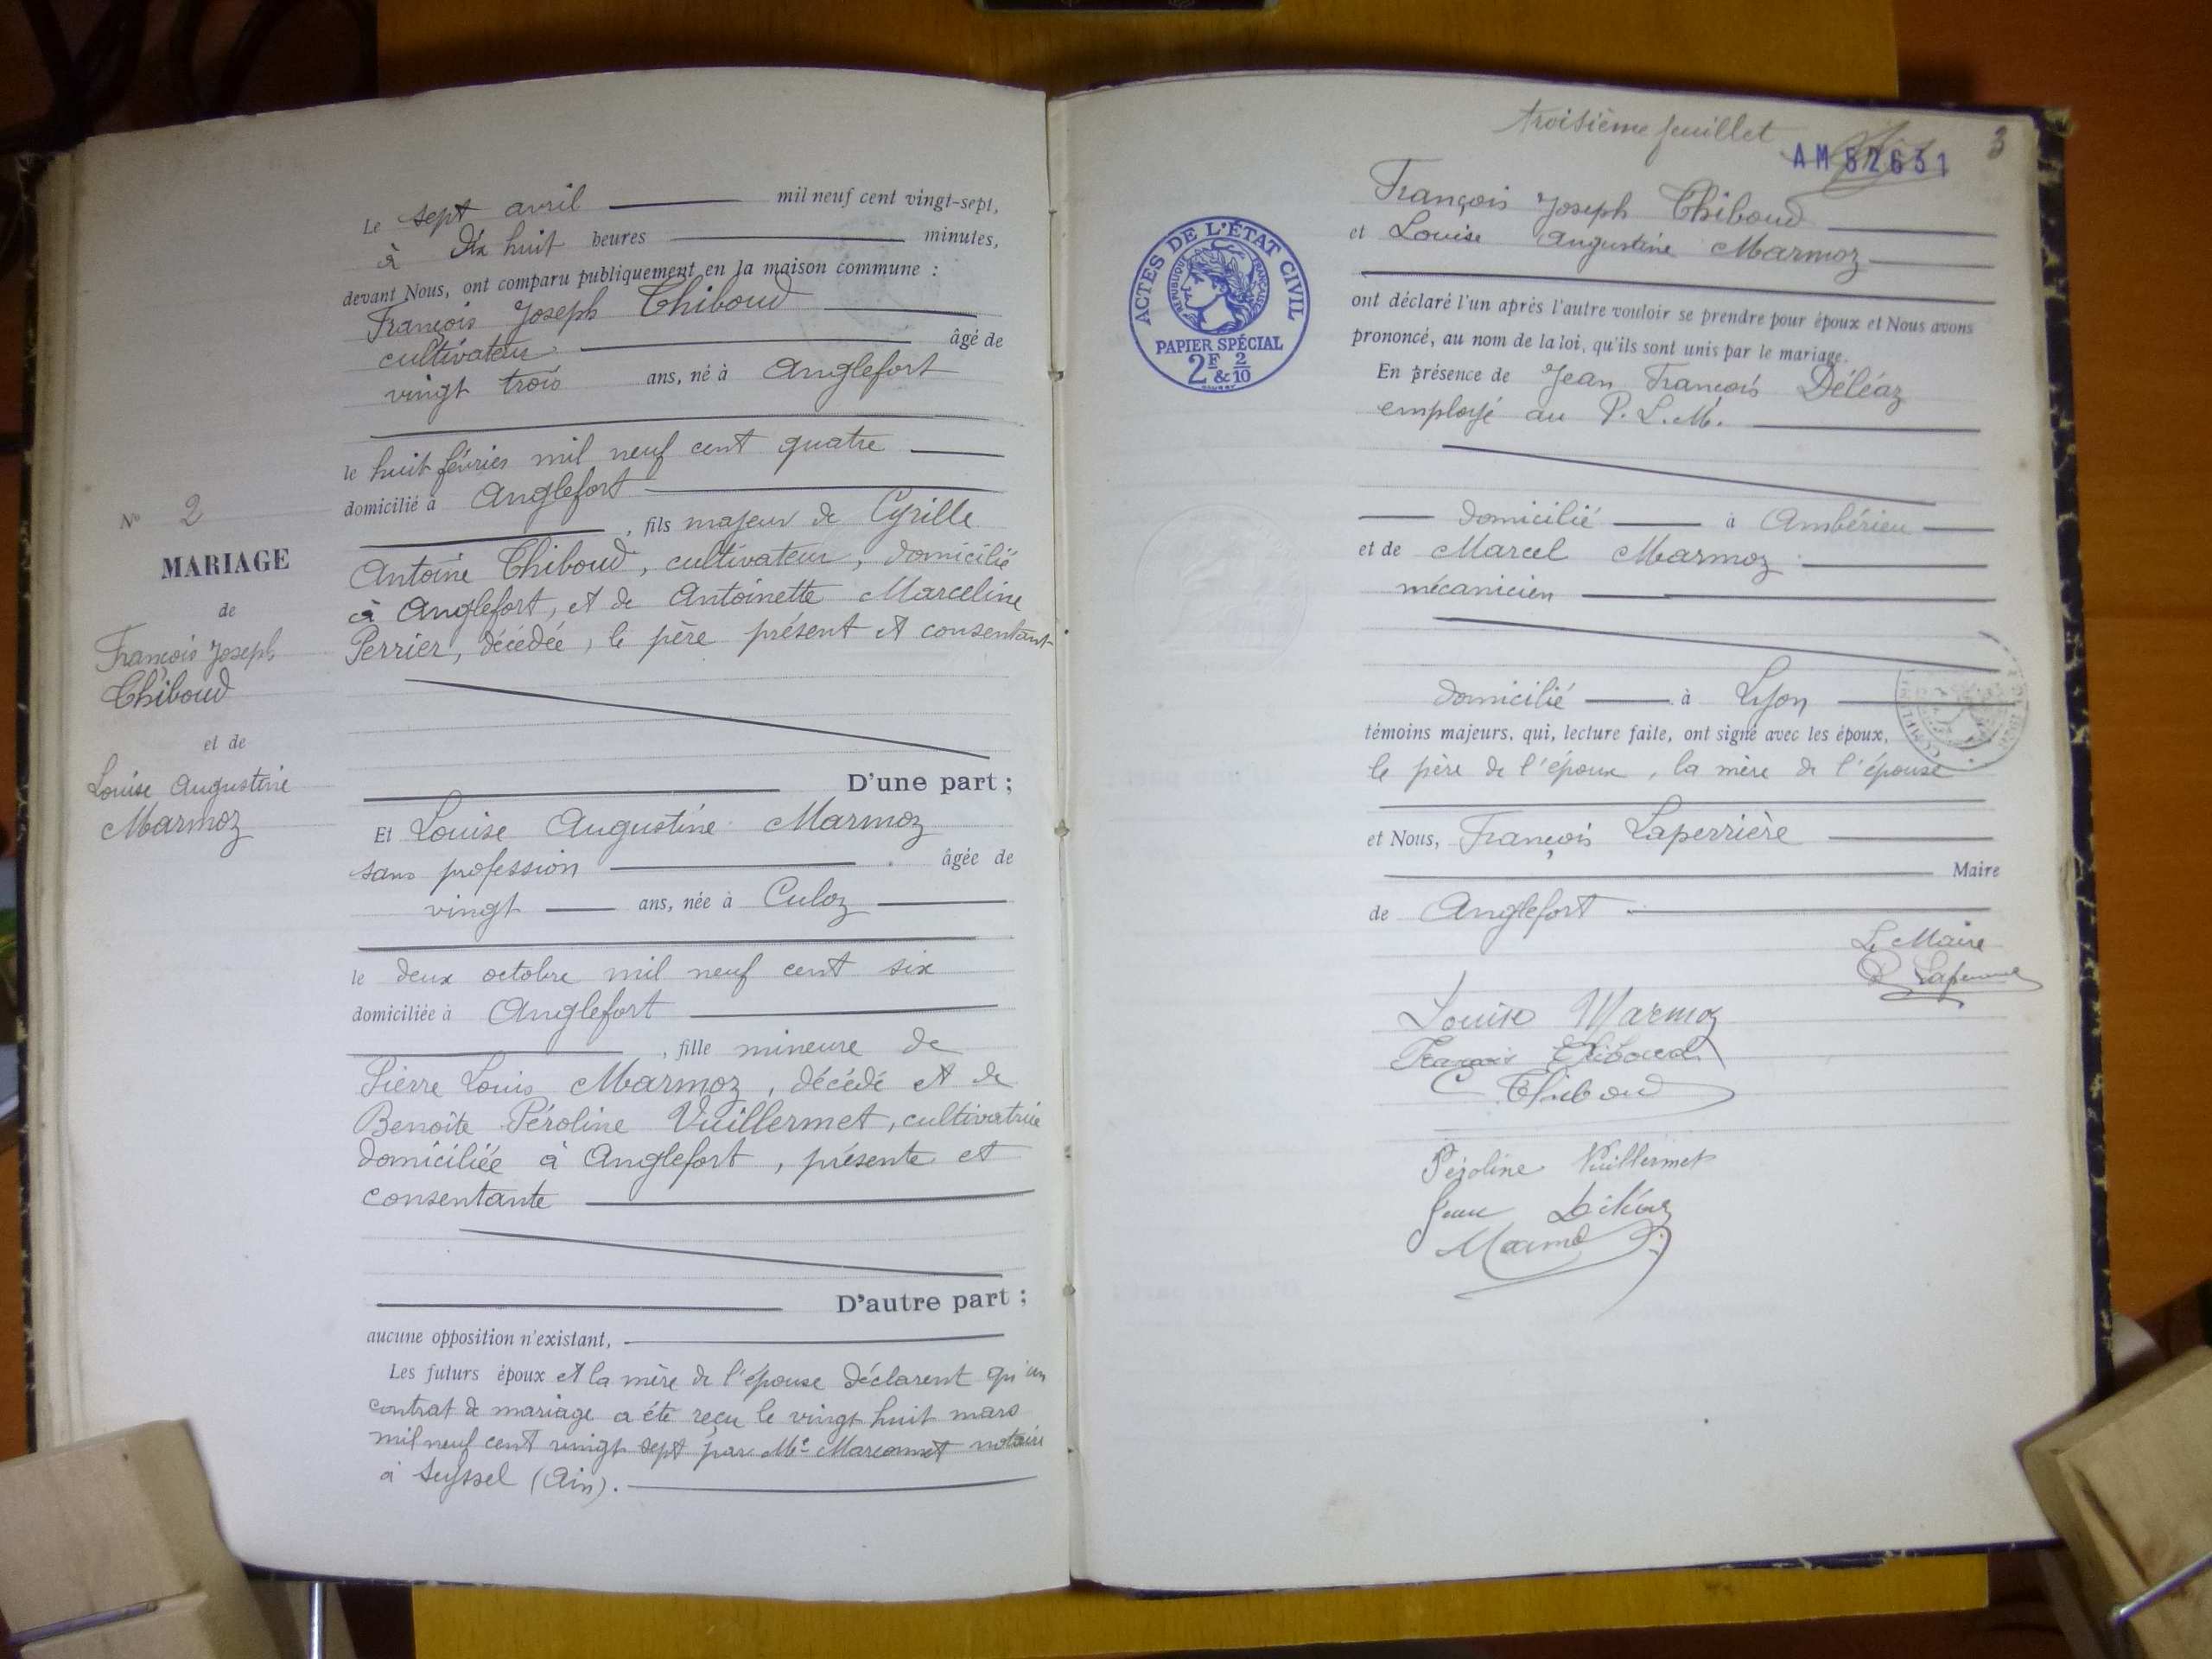 Le sept avril mil neuf cent vingt-sept,
à dix huit heures minutes,
devant Nous, ont comparu publiquement en la maison commune :
François Joseph Thiboud
cultivateur âgé de
vingt trois ans, né à Anglefort
le huit février mil neuf cent quatre
domicilié à Anglefort
, fils majeur de Cyrille
Antoine Thiboud, cultivateur, domicilié
à Anglefort, et de Antoinette Marceline
Perrier, décédée, le père présent et consentant
N° 2
MARIAGE
de
François Joseph
Thiboud
et de
Louise Augustine
Marmoz
D'une part ;
Et Louise Augustine Marmoz
sans profession âgée de
vingt ans, née à Culoz
le deux octobre mil neuf cent six
domiciliée à Anglefort
, fille mineure de
Pierre Louis Marmoz, décédé et de
Benoîte Péroline Vuillermet, cultivatrice
domiciliée à Anglefort, présente et
consentante
D'autre part ;
aucune opposition n'existant,
Les futurs époux et la mère de l'épouse déclarent qu'un
contrat de mariage a été reçu le vingt huit mars
mil neuf cent vingt sept par Me notaire
à Seyssel (Ain).
troisième feuillet
3
AM 52631
ACTES DE L'ÉTAT CIVIL
RÉPUBLIQUE FRANÇAISE
PAPIER SPÉCIAL
2F & 2/10
François Joseph Thiboud
et Louise Augustine Marmoz
ont déclaré l'un après l'autre vouloir se prendre pour époux et Nous avons
prononcé, au nom de la loi, qu'ils sont unis par le mariage.
En présence de Jean François Déléaz
employé au P.L.M.
domicilié à Ambérieu
et de Marcel Marmoz
mécanicien
domicilié à Lyon
témoins majeurs, qui, lecture faite, ont signé avec les époux,
le père de l'époux, la mère de l'épouse
et Nous, François Laperrière
Maire
de Anglefort
Le Maire
Louise Marmoz
François Thiboud
C Thiboud
Péroline Vuillermet
Jean Déléaz